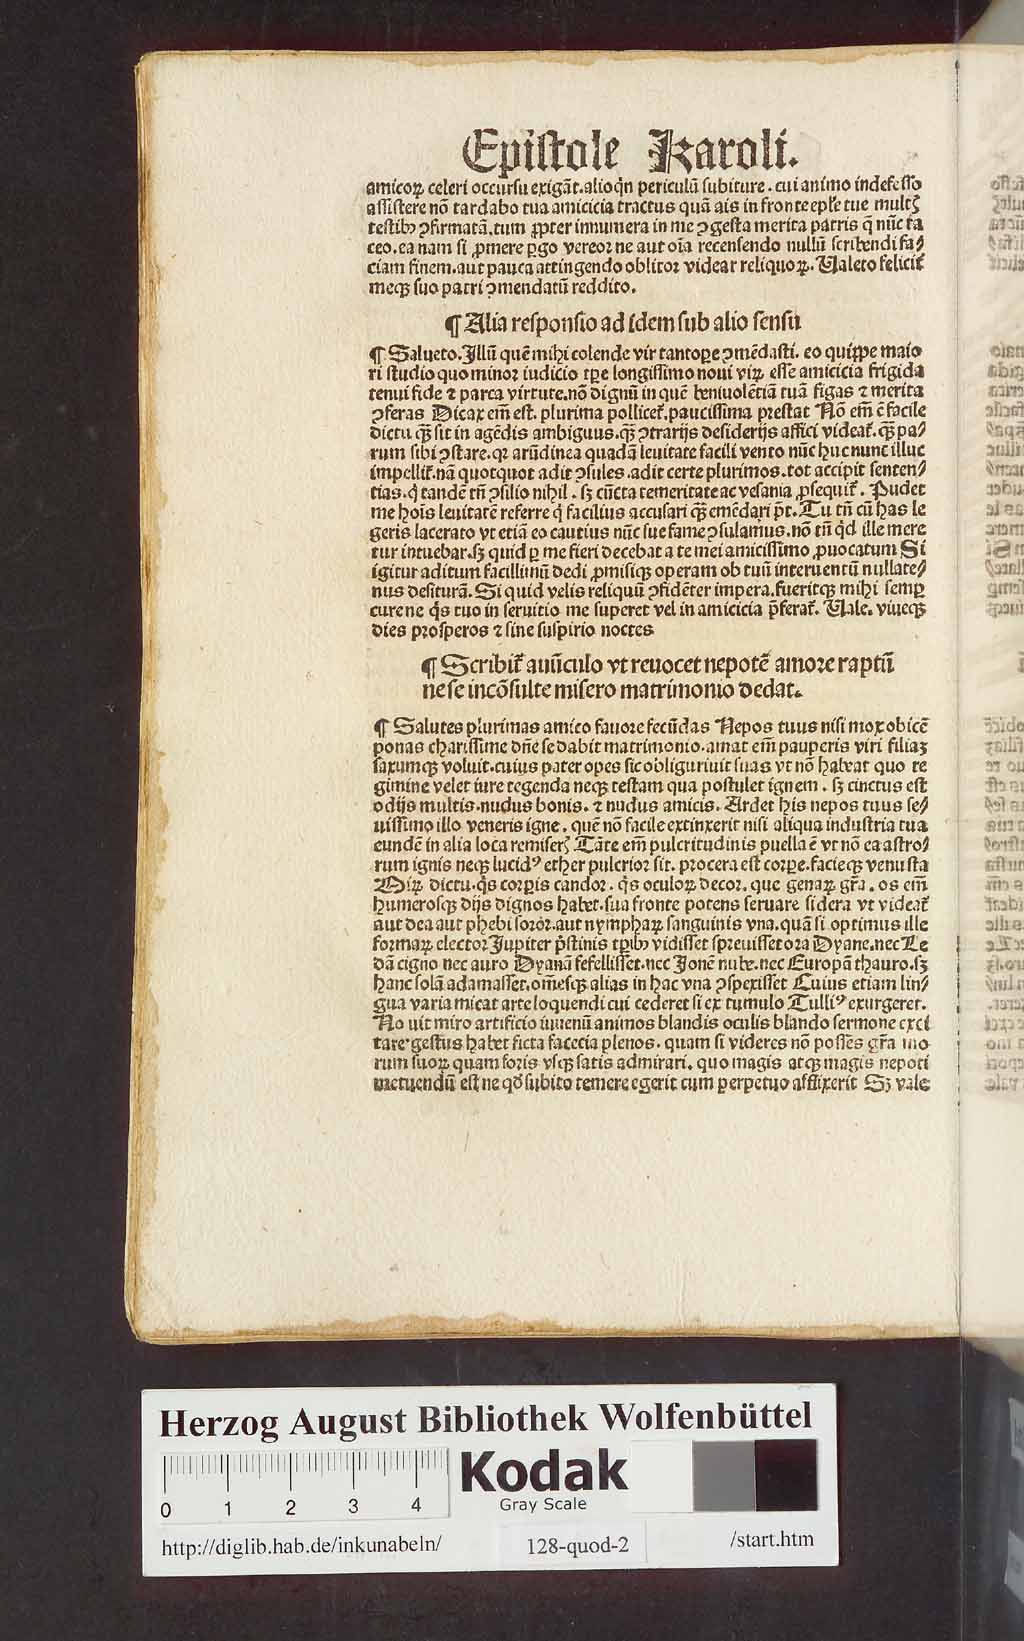 Epistole Karoli.
amicoꝝ celeri occursu exigāt. alioqͥn periculū subiture. cui animo indefesso
assistere nō tardabo tua amicicia tractus quā ais in fronte epl̄e tue multꝭ
testibꝰ ꝯfirmatā. tum ꝓpter innumera in me ꝯgesta merita patris q̄ nūc ta
ceo. ea nam si ꝓmere ꝑgo vereor ne aut oīa recensendo nullū scribendi fa⸗
ciam finem. aut pauca attingendo oblitor videar reliquoꝝ. Valeto felicit᷑
meqꝫ suo patri ꝯmendatū reddito.
¶ Alia responsio ad idem sub alio sensu
¶ Salueto. Illū quē mihi colende vir tantopere ꝯmēdasti. eo quippe maio
ri studio quo minor iudicio tꝑe longissimo noui viꝝ esse amicicia frigida
tenui fide ⁊ parca virtute. nō dignū in quē beniuolētiā tuā figas ⁊ merita
ꝯferas Dicax em̄ est. plurima pollicet᷑. paucissima prestat Nō em̄ ē facile
dictu qꝫ̄ sit in agēdis ambiguus. qꝫ̄ ꝯtrarijs desiderijs affici videat᷑. qꝫ̄ pa⸗
rum sibi ꝯstare. qr arūdinea quadā leuitate facili vento nūc huc nunc illuc
impellit᷑. nā quotquot adit ꝯsules. adit certe plurimos. tot accipit senten⸗
tias. qͥ tandē tn̄ ꝯsilio nihil. sꝫ cūcta temeritate ac vesania ꝓsequit᷑. Pudet
me hoīs leuitatē referre qͥ facilius accusari qꝫ̄ emēdari p̄t. Tu tn̄ cū has le
geris lacerato vt etiā eo cautius nūc sue fame ꝯsulamus. nō tn̄ qͥd ille mere
tur intuebar. sꝫ quid ꝑ me fieri decebat a te mei amicissimo ꝓuocatum Si
igitur aditum facillimū dedi ꝓmisiqꝫ operam ob tuū interuentū nullate⸗
nus desiturā. Si quid velis reliquū ꝯfidēter impera. fueritqꝫ mihi semꝑ
cure ne qͥs tuo in seruitio me superet vel in amicicia p̄ferat᷑. Vale. viueqꝫ
dies prosperos ⁊ sine suspirio noctes
¶ Scribit᷑ auūculo vt reuocet nepotē amore raptū
ne se incōsulte misero matrimonio dedat.
¶ Salutes plurimas amico fauore fecūdas Nepos tuus nisi mox obicē
ponas charissime dn̄e se dabit matrimonio. amat em̄ pauperis viri filiaꝫ
saxumqꝫ voluit. cuius pater opes sic obligurriuit suas vt nō habeat quo te
gimine velet iure tegenda neqꝫ testam qua postulet ignem. sꝫ cinctus est
odijs multis. nudus bonis. ⁊ nudus amicis. Ardet his nepos tuus se⸗
uissimo illo veneris igne. quē nō facile extinxerit nisi aliqua industria tua
eundē in alia loca remiserꝭ Tāte em̄ pulcritudinis puella ē vt nō ea astro⸗
rum ignis neqꝫ lucidꝰ ether pulcrior sit. procera est corpe. facieqꝫ venusta
Miꝝ dictu. qͥs corpis candor. qͥs oculoꝝ decor. que genaꝝ gr̄a. os em̄
humerosqꝫ dijs dignos habet. sua fronte potens seruare sidera vt videat᷑
aut dea aut phebi soror. aut nymphaꝝ sanguinis vna. quā si optimus ille
formaꝝ elector Jupiter p̄stinis tꝑibꝰ vidisset spreuisset ora Dyane. nec Le
dā cigno nec auro Dyanā fefellisset. nec Jonē nube. nec Europā thauro. sꝫ
hanc solā adamasset. om̄esqꝫ alias in hac vna ꝯspexisset Cuius etiam lin⸗
gua varia micat arte loquendi cui cederet si ex tumulo Tulliꝰ exurgeret.
No uit miro artificio iuuenū animos blandis oculis blando sermone exci
tare. gestus habet ficta facecia plenos. quam si videres nō posses gr̄a mo
rum suoꝝ quam foris vsqꝫ satis admirari. quo magis atqꝫ magis nepoti
metuendū est ne qd̄ subito temere egerit cum perpetuo afflixerit Sꝫ vale
Herzog August Bibliothek Wolfenbüttel
0 1 2 3 4
Kodak
Gray Scale
http://diglib.hab.de/inkunabeln/ 128-quod-2 /start.htm